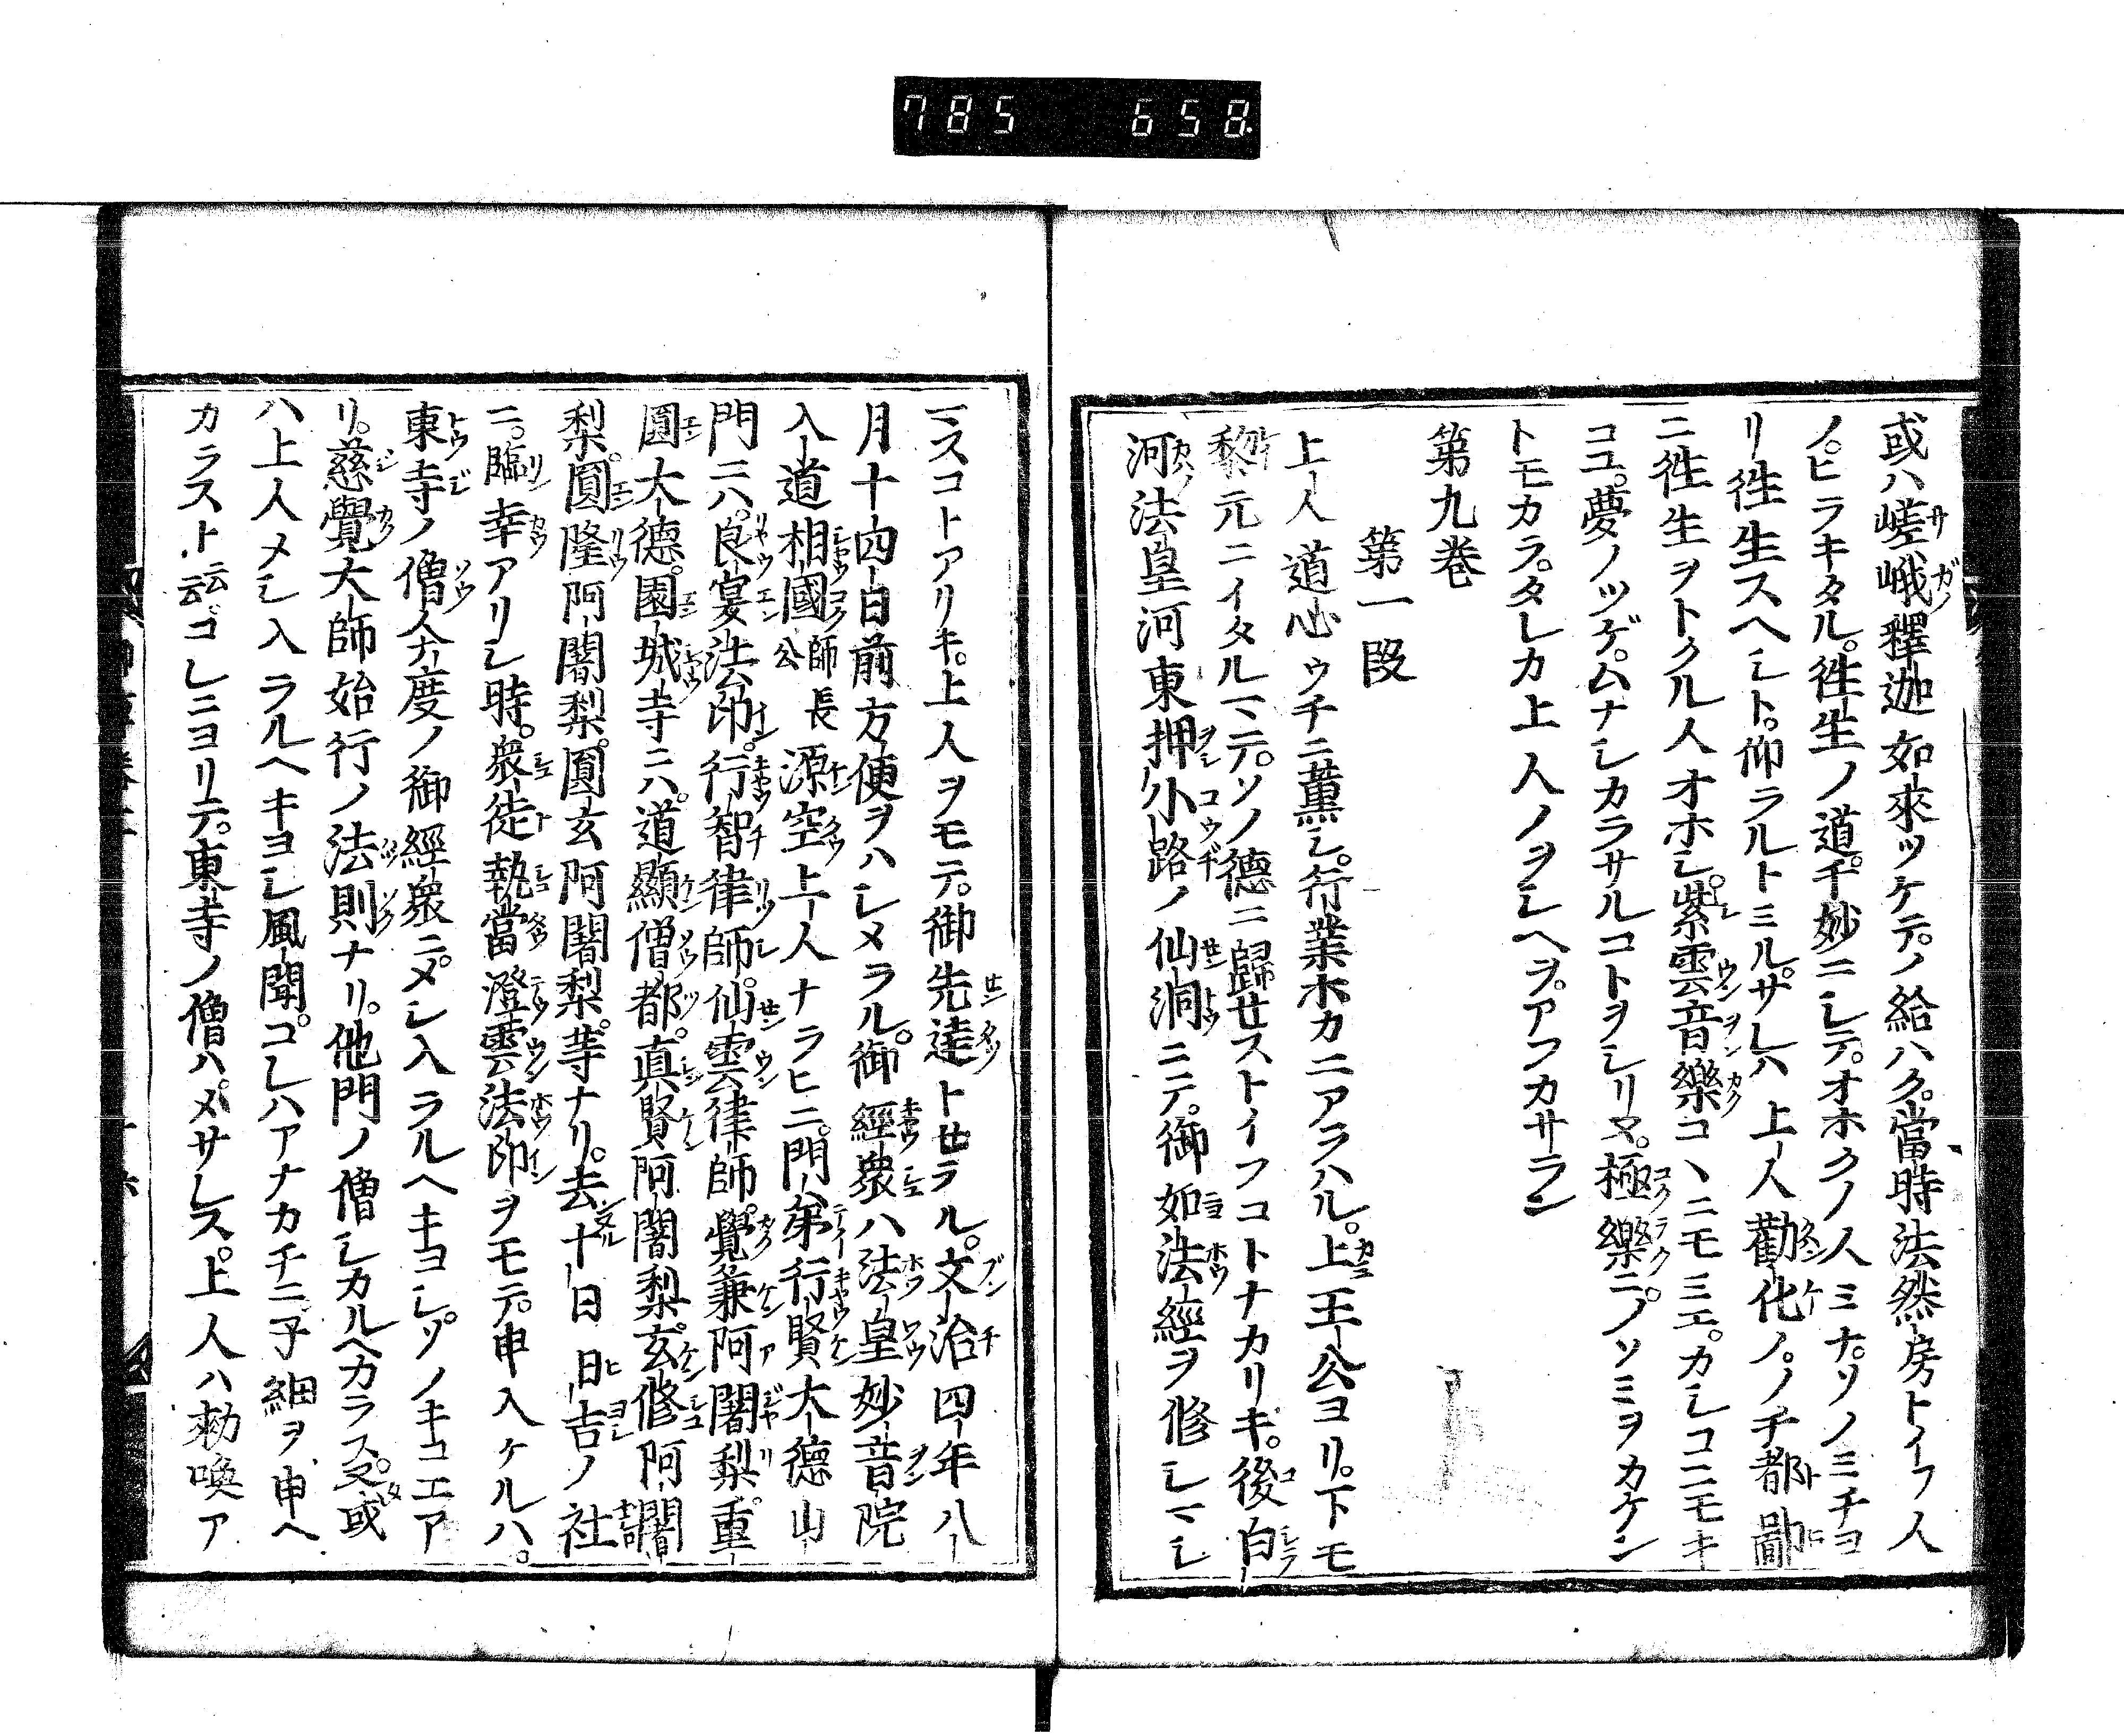 785 658
或ハ嵯峨釋迦如來ツケテノ給ハク。當時法然房トイフ人
ノ。ヒラキタル。徃生ノ道。千妙ニシテ。オホクノ人ミナ。ソノミチヨ
リ徃生スヘシト。仰ラルトミル。サレハ上人勸化ノ。ノチ都鄙
ニ徃生ヲトクル人オホシ。紫雲音樂コヽニモミエ。カシコニモキ
コユ。夢ノツゲ。ムナシカラサルコトヲシリヌ。極樂ニ。ノソミヲカケン
トモカラ。タレカ上人ノヲシヘヲ。アフカサラン
第九巻
第一段
上人道心ウチニ薫シ。行業ホカニアラハル。上王公ヨリ。下モ
黎元ニイタルマテ。ソノ德ニ歸セストイフコトナカリキ。後白
河法皇河東押小路ノ仙洞ニテ。御如法經ヲ修シマシ
マスコトアリキ。上人ヲモテ。御先達トセラル。文治四年八
月十四日前方便ヲハシメラル。御經衆ハ法皇妙音院
入道相國師長公源空上人ナラヒニ。門弟行賢大德山
門ニハ。良宴法印。行智律師。仙雲律師。覺兼阿闍梨。重
圓大德。園城寺ニハ。道顯僧都。真賢阿闍梨。玄修阿闍
梨。圓隆阿闍梨。圓玄阿闍梨。等ナリ。去十日日吉ノ社
ニ。臨幸アリシ時。衆徒執當澄雲法印ヲモテ。申入ケルハ。
東寺ノ僧今度ノ御經衆ニ。メシ入ラルヘキヨシ。ソノキコエア
リ。慈覺大師始行ノ法則ナリ。他門ノ僧シカルヘカラス。又或
ハ上人メシ入ラルヘキヨシ風聞。コレハアナカチニ。子細ヲ申ヘ
カラスト云云。コレニヨリテ。東寺ノ僧ハ。メサレス。上人ハ勅喚ア